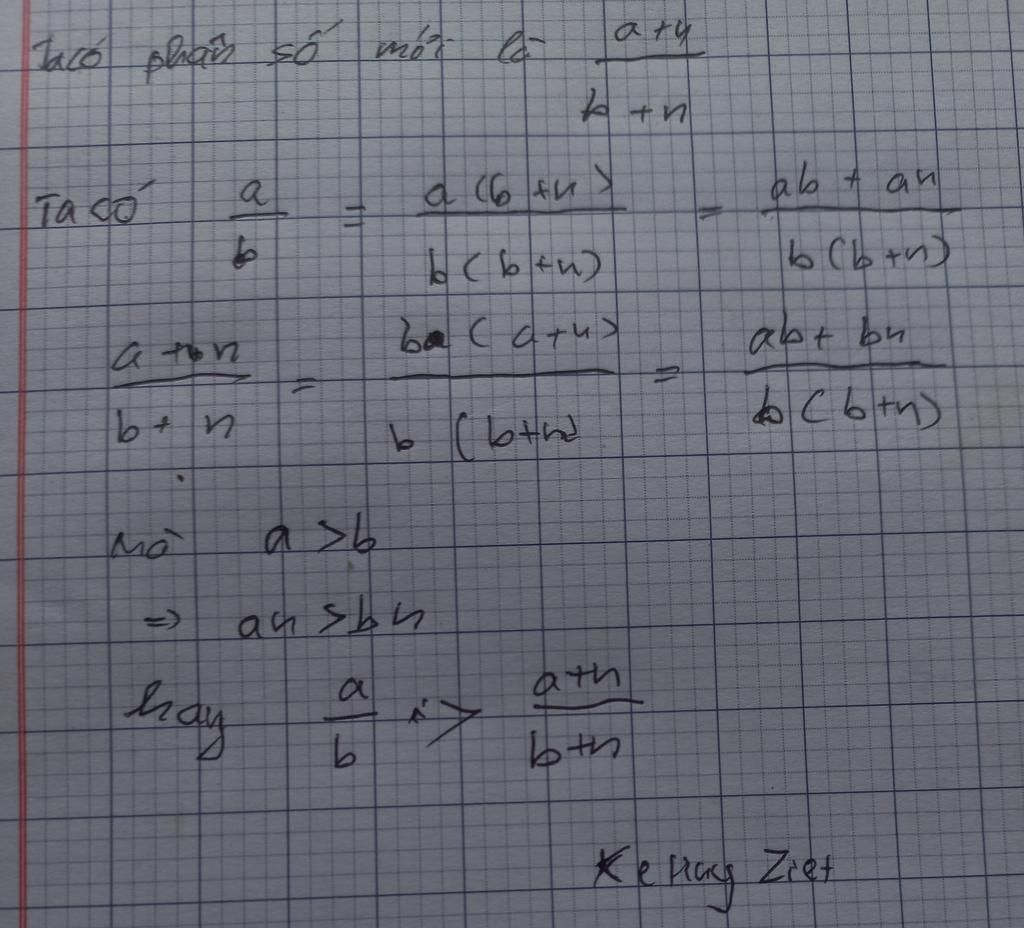 Ta có phân số mới là a+n / b+n
Ta có a/b = a(b+n) / b(b+n) = ab + an / b(b+n)
a+n / b+n = b(a+n) / b(b+n) = ab + bn / b(b+n)
Mà a > b
=> an > bn
hay a/b > a+n / b+n